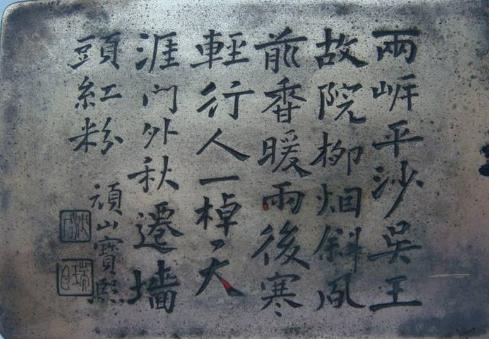 兩岸平沙吳王
故院柳烟斜風
前香暖雨後寒
輕行人一棹天
涯門外秋遷墻
頭紅粉
頑山寶熙